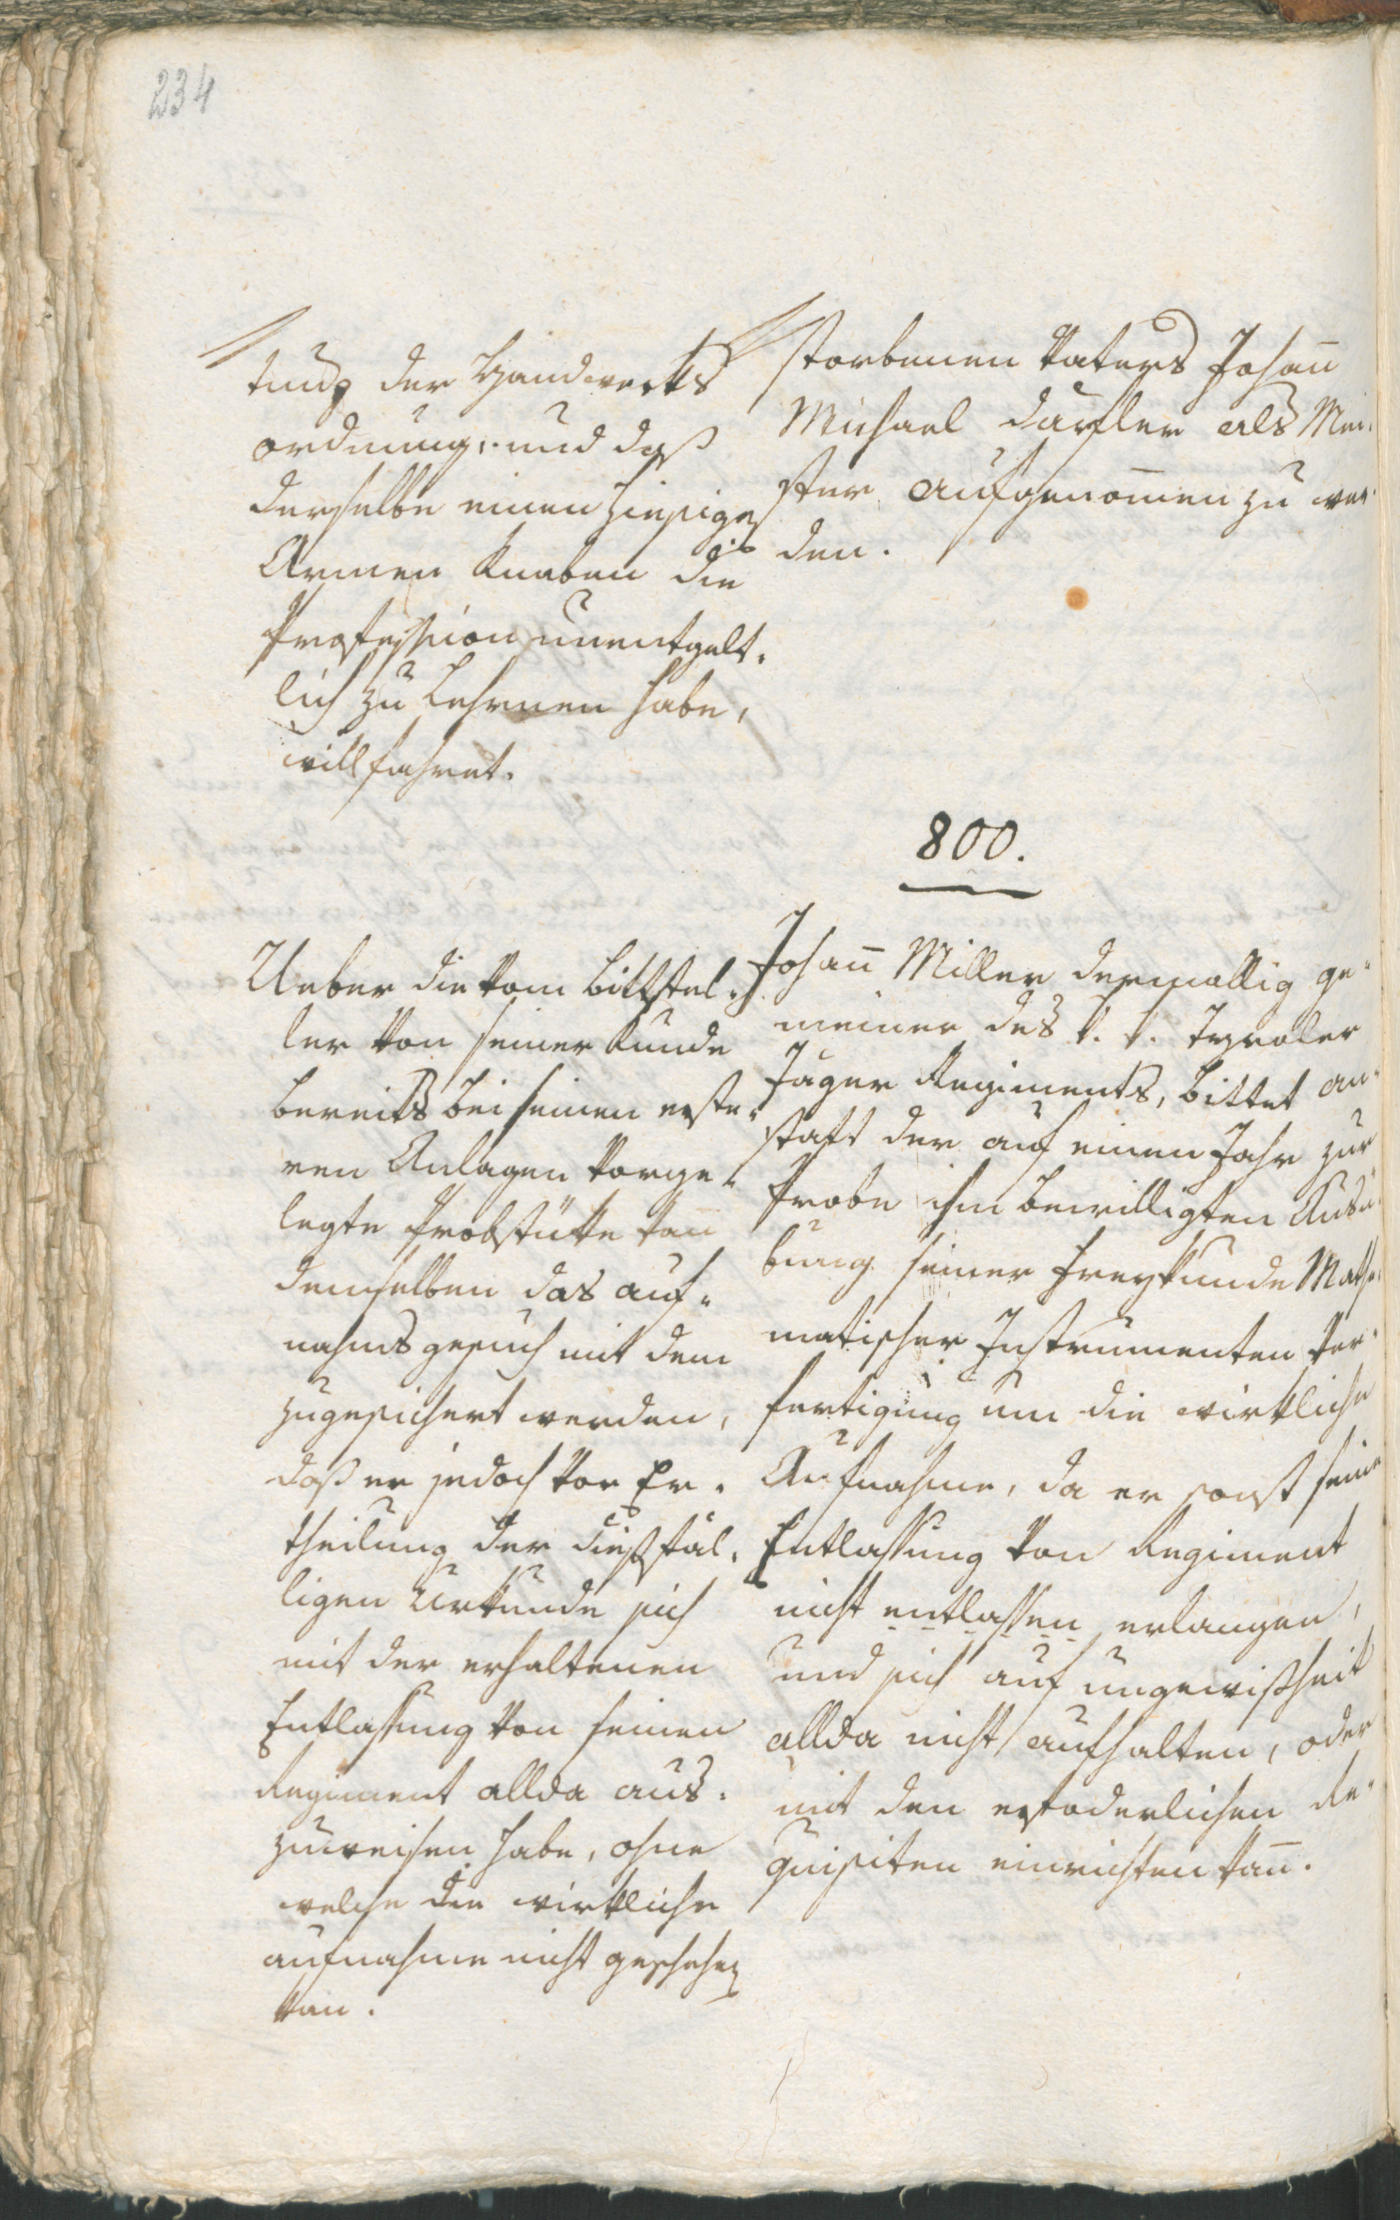 234
tung der Handwerks
ordnung, und daß
derselbe einen hiesigen
Armen Knaben die
Profession unentgelt„
lich zu Lehrnen habe,
willfahret.
storbenen Vaters Johan̄
Michael Daxler als Mei„
ster aufgenom̄en zu wer„
den.
800.
Ueber die vom Bittstel„
ler von seiner Kunde
bereits bei seinen erste„
ren Anlagen vorge„
legte Probstücke kan̄
demselben das auf„
nahmsgesuch mit dem
zugesichert werden,
daß er jedoch vor Er„
theilung der dießfäl„
ligen Urkunde sich
mit der erhaltenen
Entlassung von seinen
Regiment allda aus„
zuweisen habe, ohne
welche die wirkliche
aufnahme nicht geschehen
kan.
Johan̄ Miller dermallig ge„
meiner des k. k. Tyroler
Jäger Regiments, bittet an„
statt der auf einen Jahr zur
Probe ihm bewilligten Ausü„
bung seiner Freykunde Mathe„
matischer Instrumenten Ver„
fertigung um die wirkliche
Aufnahme, da er sonst seine
Entlassung von Regiment
nicht entlassen erlangen,
und sich auf ungewißheit
allda nicht aufhalten, oder
mit den erfoderlichen Re„
quisiten einrichten kan̄.